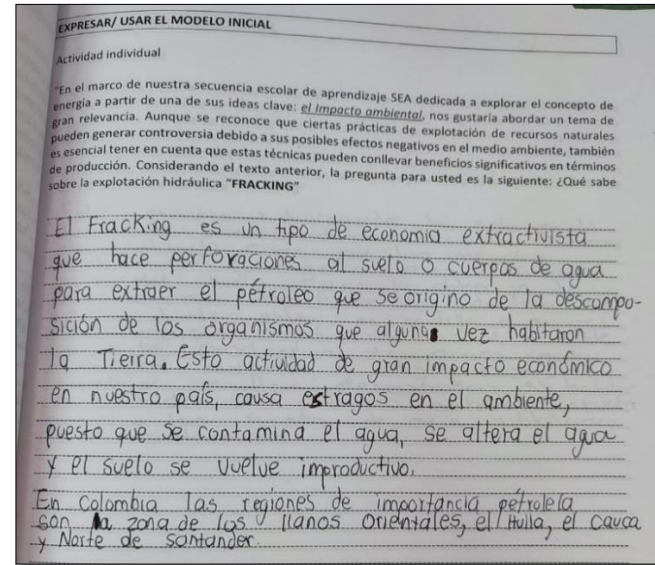 EXPRESAR/ USAR EL MODELO INICIAL
Actividad individual
"En el marco de nuestra secuencia escolar de aprendizaje SEA dedicada a explorar el concepto de
energía a partir de una de sus ideas clave: el Impacto ambiental, nos gustaría abordar un tema de
gran relevancia. Aunque se reconoce que ciertas prácticas de explotación de recursos naturales
pueden generar controversia debido a sus posibles efectos negativos en el medio ambiente, también
es esencial tener en cuenta que estas técnicas pueden conllevar beneficios significativos en términos
de producción. Considerando el texto anterior, la pregunta para usted es la siguiente: ¿Qué sabe
sobre la explotación hidráulica "FRACKING"
El Fracking es un tipo de economia extractivista
que hace perforaciones al suelo o cuerpos de agua
para extraer el petroleo que se origino de la descompo-
sición de los organismos que alguna vez habitaron
la Tierra. Esto actividad de gran impacto económico
en nuestro país, causa estragos en el ambiente,
puesto que se contamina el agua, se altera el agua
y el suelo se vuelve improductivo.
En Colombia las regiones de importancia petrolela
son la zona de los llanos orientales, el Huila, el cauca
y Norte de santander.